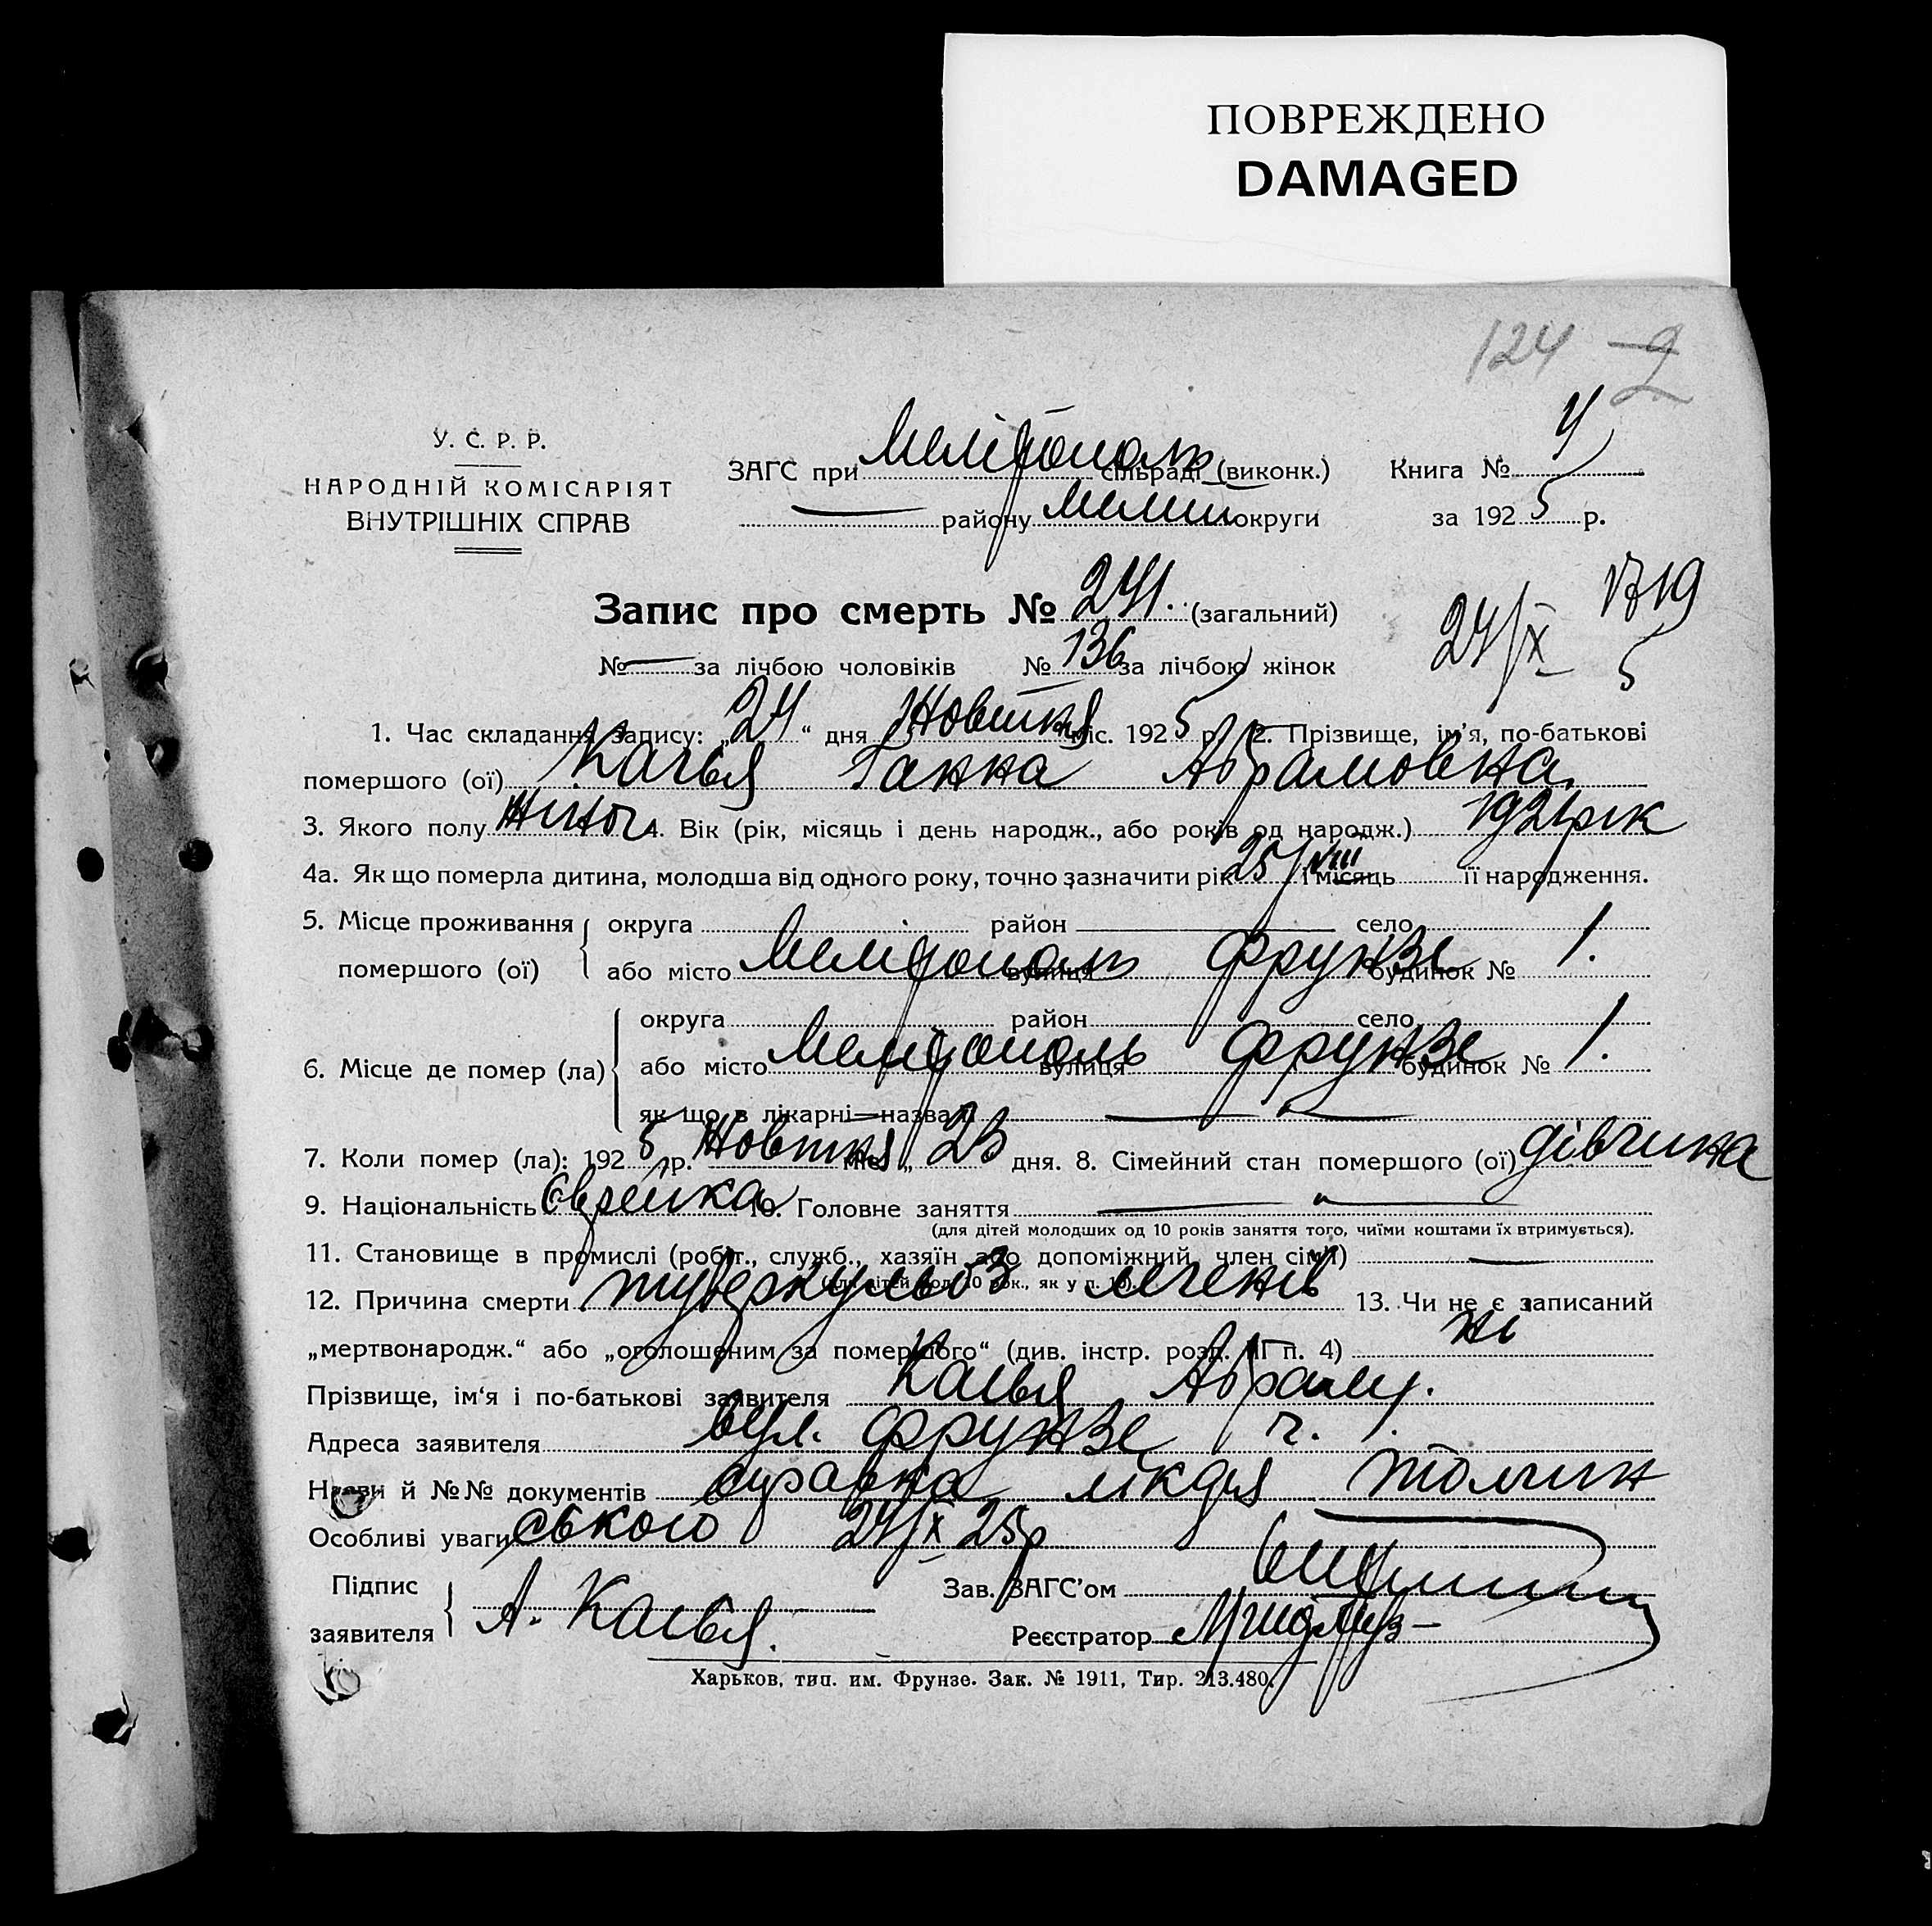 ПОВРЕЖДЕНО
DAMAGED
124
2
У. С. Р. Р.
НАРОДНІЙ КОМІСАРІЯТ
ВНУТРІШНІХ СПРАВ
ЗАГС при Мелітополь сільраді (виконк.) Книга № 4
— району Меліт округи за 1925 р.
Запис про смерть № 241. (загальний)
24/X 5
№ — за лічбою чоловіків № 136 за лічбою жінок
1. Час складання запису: „24“ дня Жовтня міс. 1925 р. 2. Прізвище, ім'я, по-батькові
помершого (ої) Ганна Абрамовна.
3. Якого полу жіноч 4. Вік (рік, місяць і день народж., або років од народж.)
4а. Як що померла дитина, молодша від одного року, точно зазначити рік 25/VIII і місяць її народження.
5. Місце проживання помершого (ої) { округа район — село
або місто Мелітополь вулиця Фрунзе будинок № 1.
6. Місце де помер (ла) { округа район село
або місто Мелітополь вулиця Фрунзе будинок № 1.
як що в лікарні—назва її — „ —
7. Коли помер (ла): 1925 р. Жовтня міс. „23 дня. 8. Сімейний стан помершого (ої) дівчина
9. Національність Єврейка 10. Головне заняття — „ —
(для дітей молодших од 10 років заняття того, чиїми коштами їх втримується).
11. Становище в промислі (робіт., служб., хазяїн або допоміжний член сім'ї) —
(для дітей мол. 10 рок., як у п. 10).
12. Причина смерти туберкульоз легенів 13. Чи не є записаний
„мертвонародж.“ або „оголошеним за помершого“ (див. інстр. розд. п. 4) ні
Прізвище, ім‘я і по-батькові заявителя Абрам
Адреса заявителя вул. Фрунзе ч. 1.
Назви й №№ документів лікаря Толчин
Особливі уваги ського 24/X 25р
Підпис заявителя { А.
Зав. ЗАГС'ом
Реєстратор
Харьков, тип. им. Фрунзе. Зак. № 1911, Тир. 213.480.